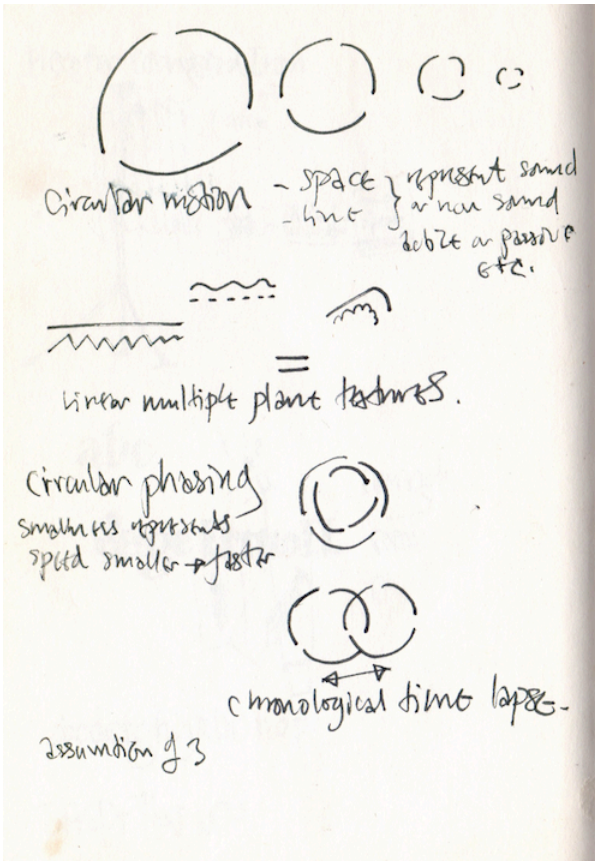 circular motion
- space } represent sound
- line } or non sound
active or passive
etc.
=
linear multiple plane textures.
circular phasing
smallness represents
speed smaller → faster
chronological time lapse-
assumtion of 3